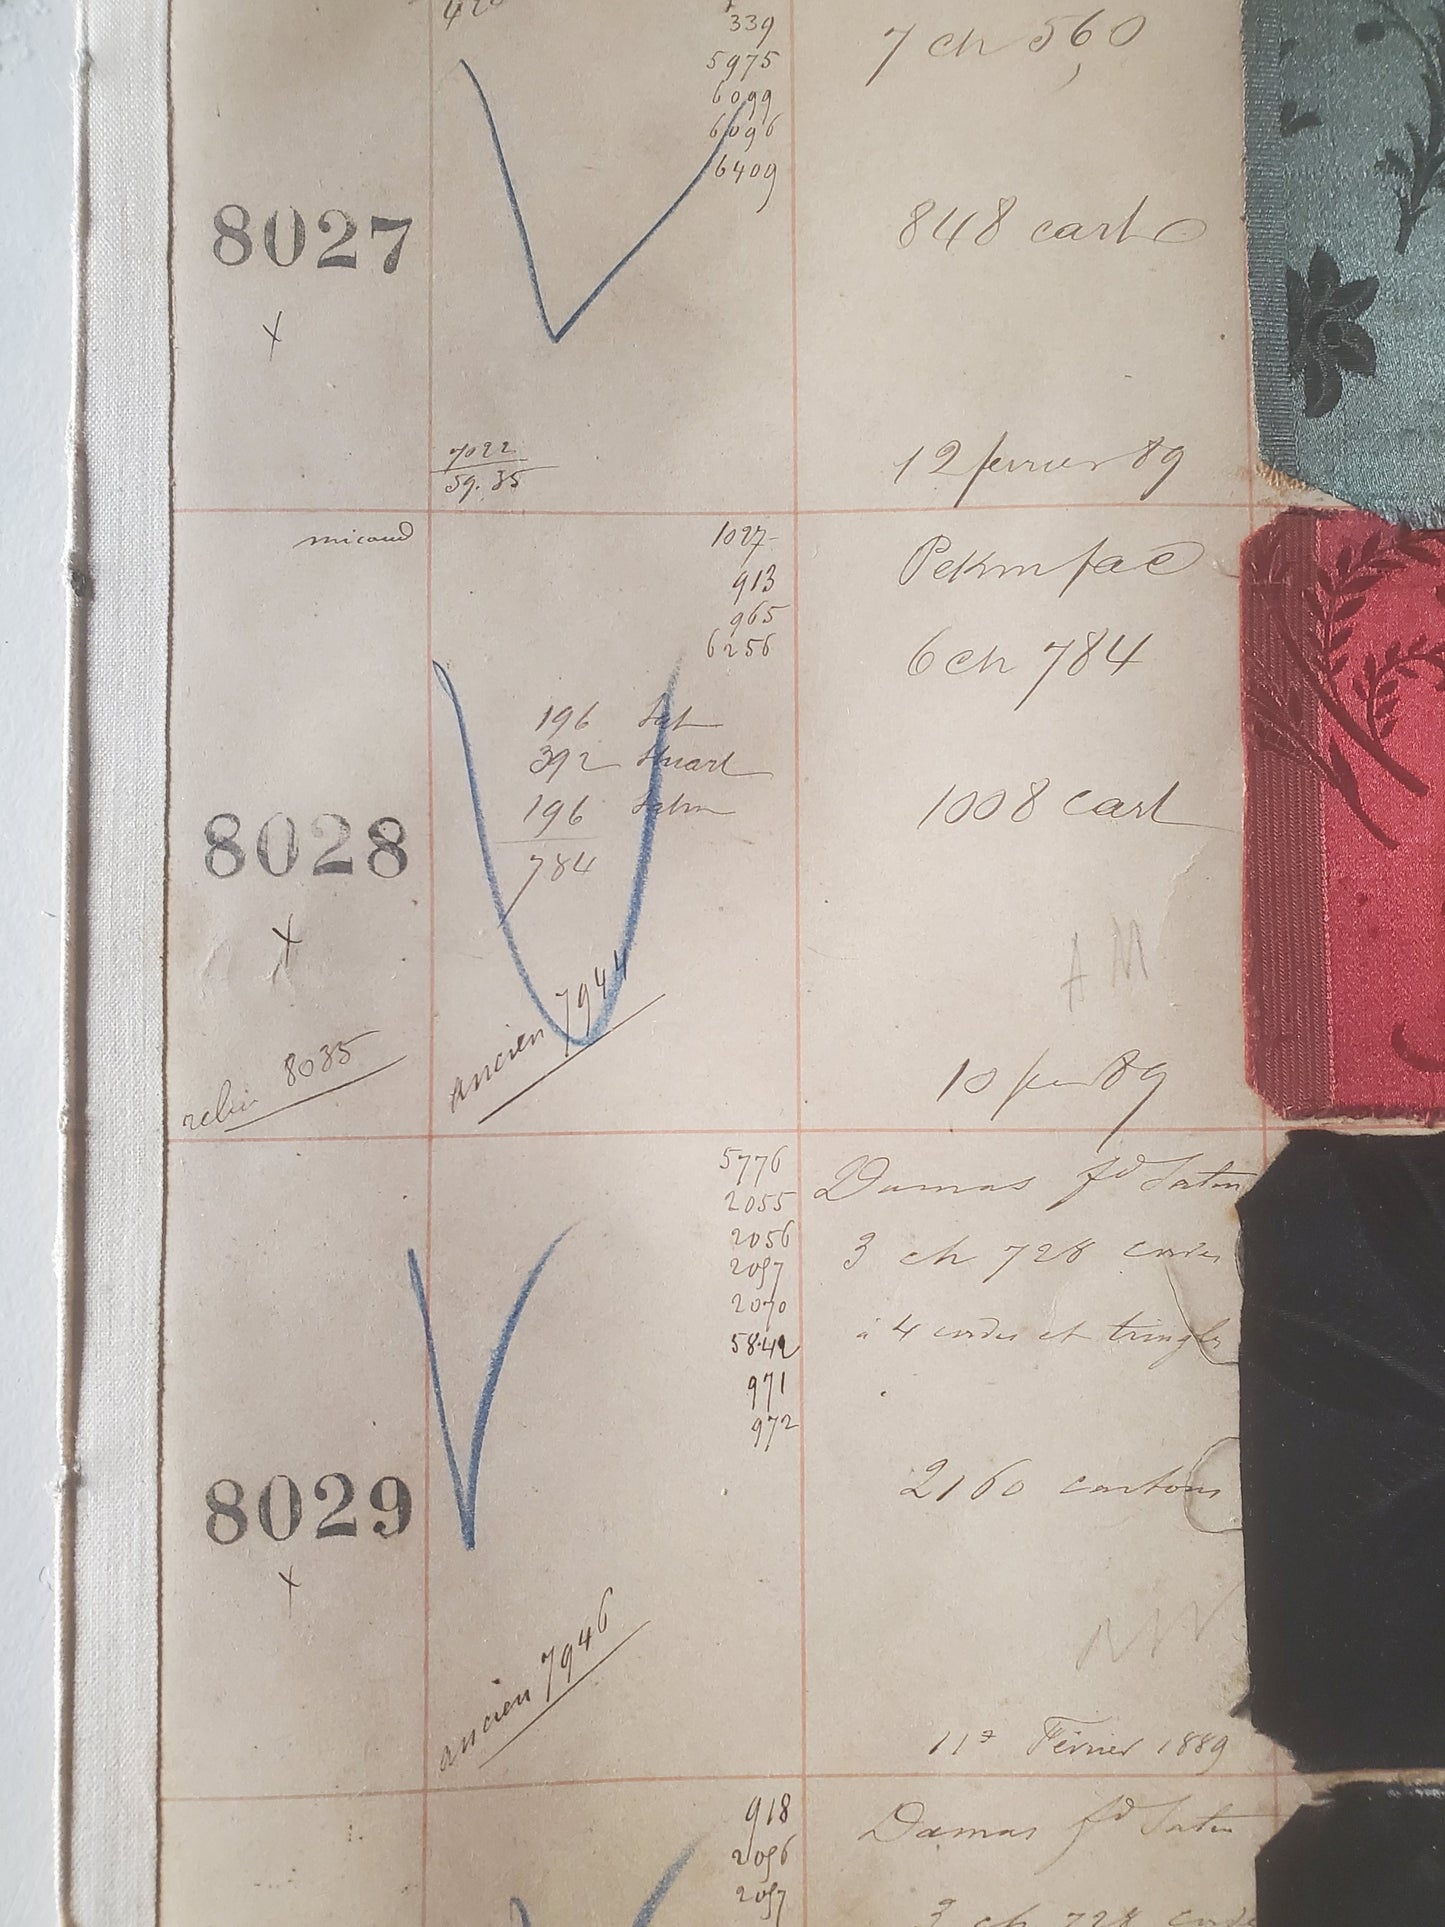 339
5975
6099
6096
6409
7 ch 560
8027
848 cart
7022
59.35
12 fevrier 89
micaud
1027
913
965
6256
Pekin fac
6 ch 784
196 Sat
392 Stuart
196 Satin
784
8028
1008 cart
AM
ancien 7944
8035
10 fev 89
5776
2055
2056
2057
2070
5842
971
972
Damas fd Satin
3 ch 728 cordes
à 4 cordes et tringles
8029
2160 cartons
ancien 7946
11 Février 1889
918
2056
2057
Damas fd Satin
3 ch 728